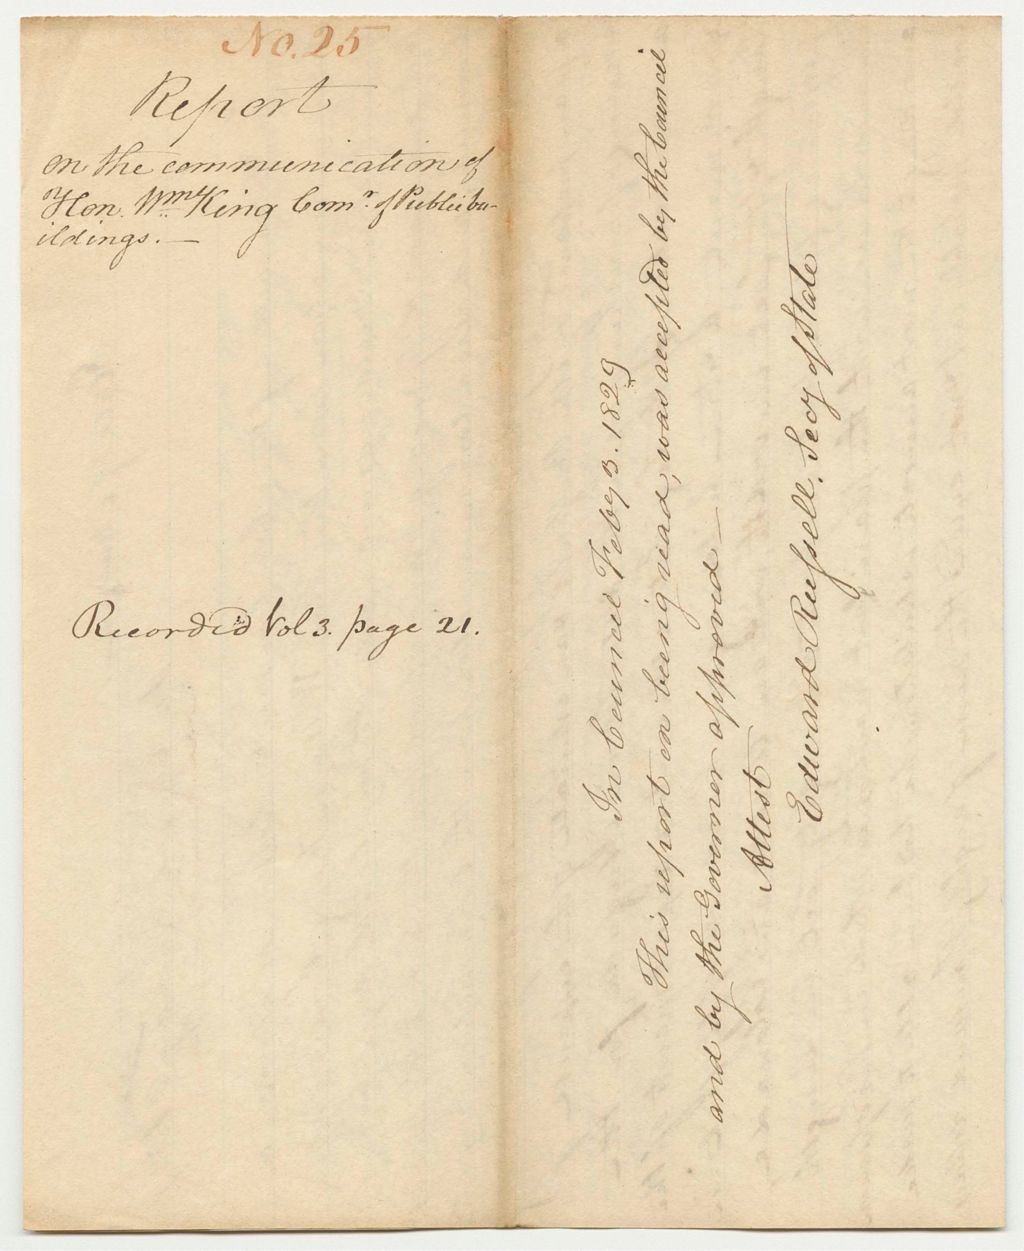 No. 25
Report
on the communication of
Hon. Wm King Comr. of Public bu-
ildings. —
Recorded Vol 3. page 21.
In Council Feby 3. 1829
This report on being read, was accepted by the Council
and by the Governor approved —
Attest
Edward Russell. Secy of State